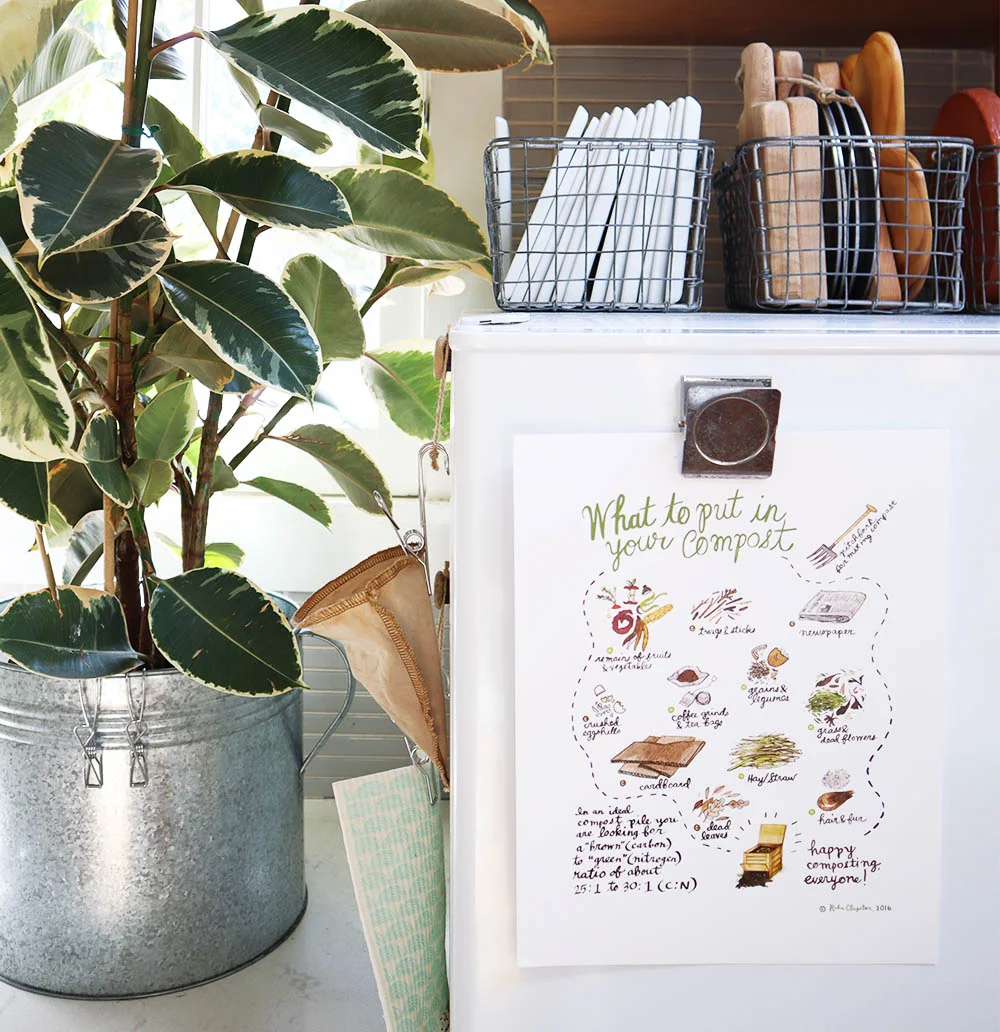 What to put in
your Compost
pitchfork
for mixing compost
remains of fruits
& vegetables
C twigs & sticks
C newspaper
grains &
legumes
C crushed
eggshells
coffee grinds
& tea bags
grass &
dead flowers
C cardboard
Hay/Straw
C dead
leaves
hair & fur
In an ideal
compost pile you
are looking for
a "brown" (carbon)
to "green" (nitrogen)
ratio of about
25:1 to 30:1 (C:N)
happy
composting,
everyone!
© 2016